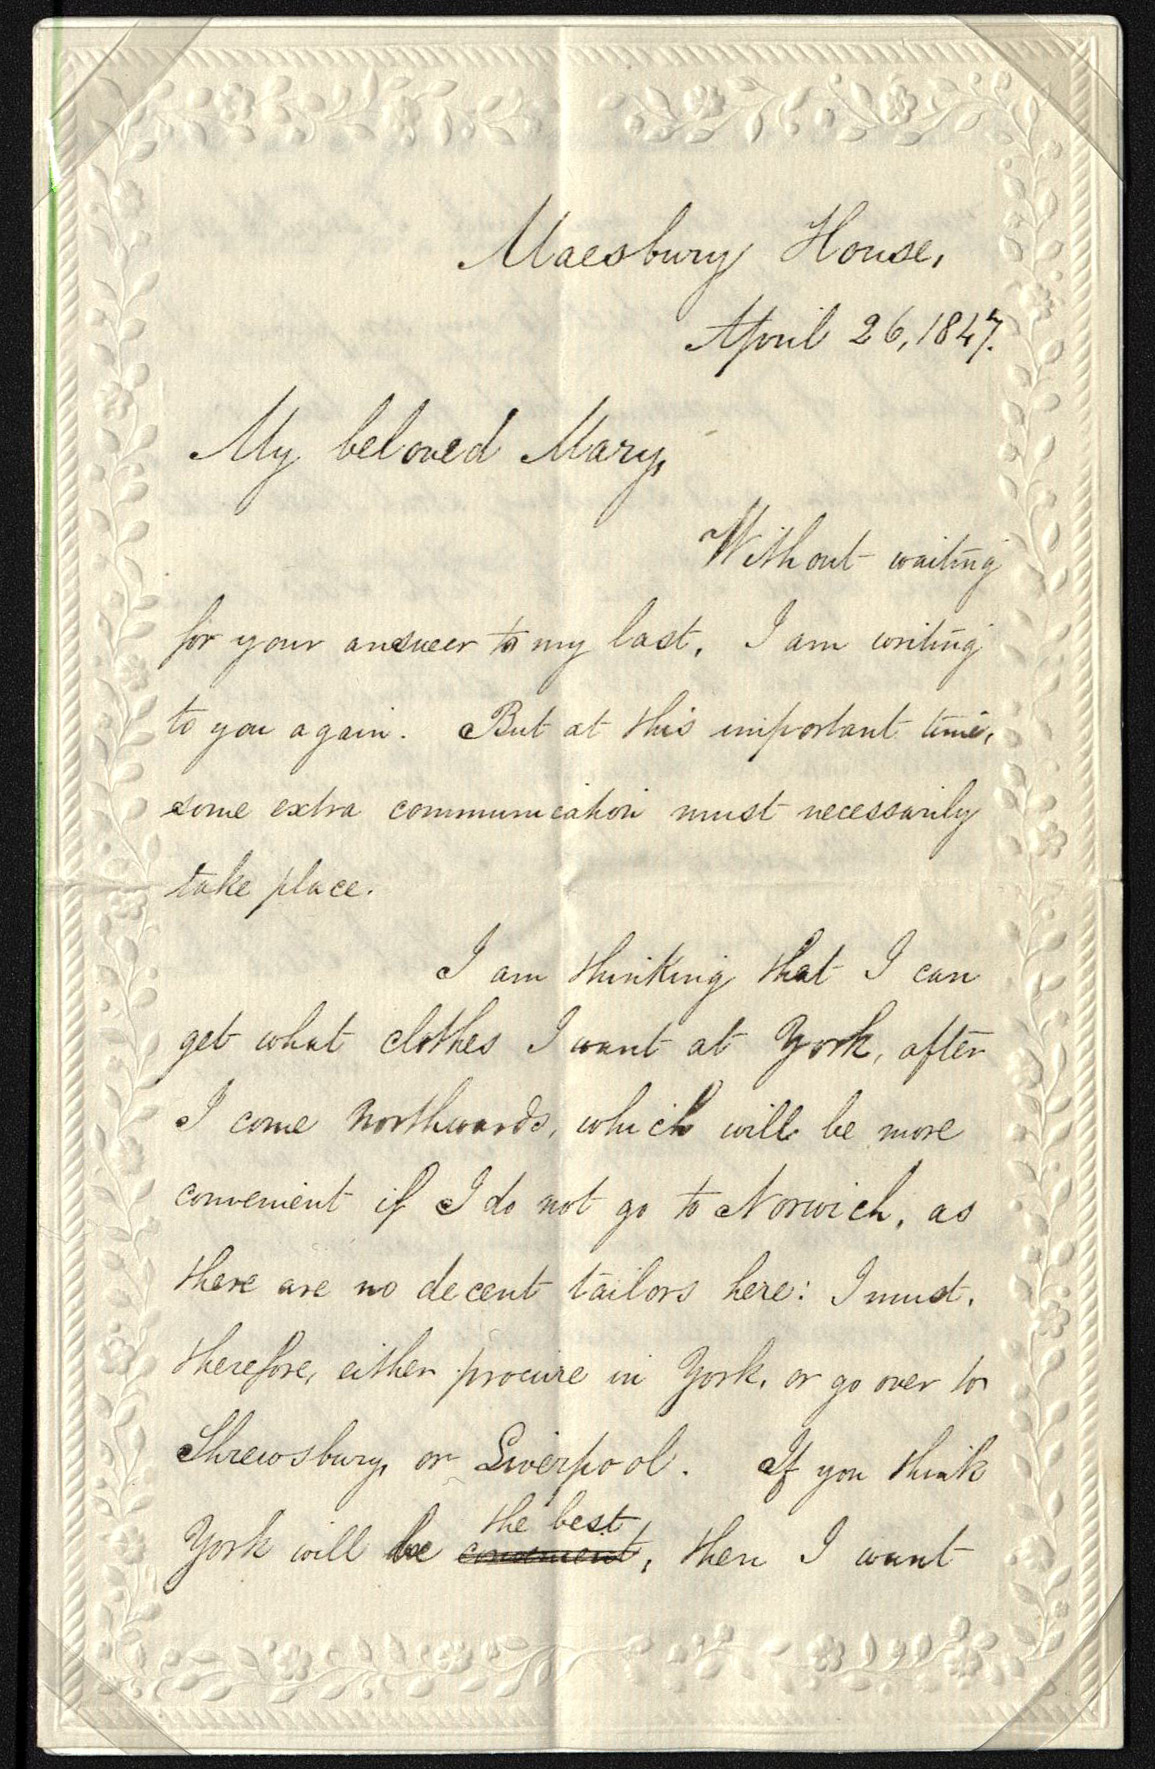 Maesbury House,
April 26, 1847.
My beloved Mary,
Without waiting
for your answer to my last, I am writing
to you again. But at this important time,
some extra communication must necessarily
take place.
I am thinking that I can
get what clothes I want at York, after
I come northwards, which will be more
convenient if I do not go to Norwich, as
there are no decent tailors here: I must,
therefore, either procure in York, or go over to
Shrewsbury, or Liverpool. If you think
the best
York will be convenient, then I want